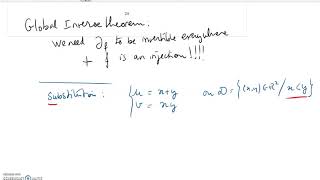 Global Inverse theorem.
we need ∂f to be invertible everywhere
+ f is an injection!!!!
Substitution: { u = x+y
v = xy
on D = {(x,y) ∈ R² / x<y}